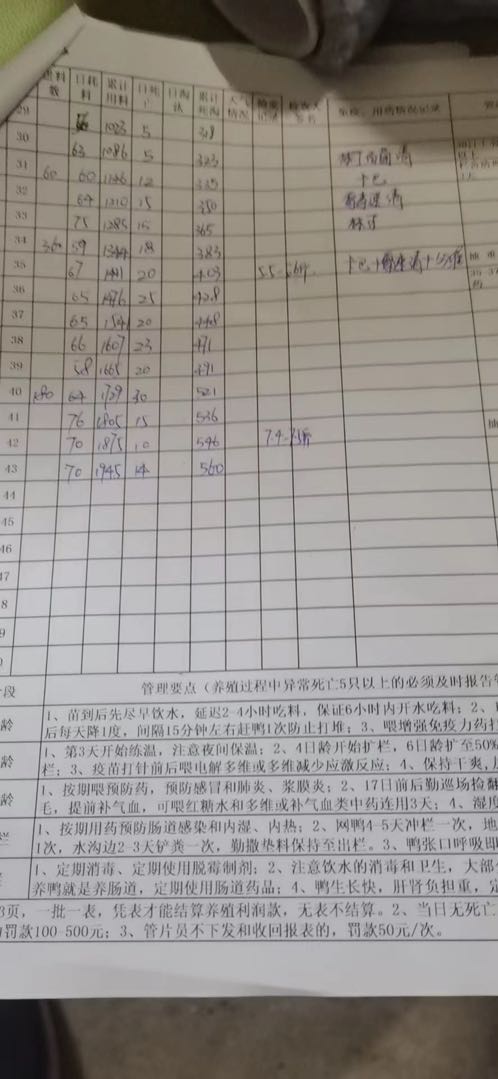 进料数 日耗料 累计用料 日死亡 日淘汰 累计死淘 天气情况 免疫、用药情况记录
29 1023 5 318
30 63 1086 5 323
31 60 60 1146 12 335 卡巴
32 64 1210 15 350
33 75 1285 15 365
34 360 59 1344 18 383
35 67 20 403
36 65 1476 25 428
37 65 1541 20 448
38 66 1607 23 471
39 58 1665 20 491
40 64 1729 30 521
41 76 1805 15 536
42 70 1875 10 546
43 70 1945 14 560
44
45
46
47
8
9
段 管理要点（养殖过程中异常死亡5只以上的必须及时报告
龄 1、苗到后先尽早饮水，延迟2-4小时吃料，保证6小时内开水吃料；2、
后每天降1度，间隔15分钟左右赶鸭1次防止打堆；3、喂增强免疫力药
龄 1、第3天开始练温，注意夜间保温；2、4日龄开始扩栏，6日龄扩至50%
栏；3、疫苗打针前后喂电解多维或多维减少应激反应；4、保持干爽，
龄 1、按期喂预防药，预防感冒和肺炎、浆膜炎；2、17日前后勤巡场捡翻
毛，提前补气血，可喂红糖水和多维或补气血类中药连用3天；4、湿度
栏 1、按期用药预防肠道感染和内湿、内热；2、网鸭4-5天冲栏一次，地
1次，水沟边2-3天铲粪一次，勤撒垫料保持至出栏。3、鸭张口呼吸即
1、定期消毒、定期使用脱霉制剂；2、注意饮水的消毒和卫生，大部分
养鸭就是养肠道，定期使用肠道药品；4、鸭生长快，肝肾负担重，定
3页，一批一表，凭表才能结算养殖利润款，无表不结算。2、当日无死亡
罚款100-500元；3、管片员不下发和收回报表的，罚款50元/次。